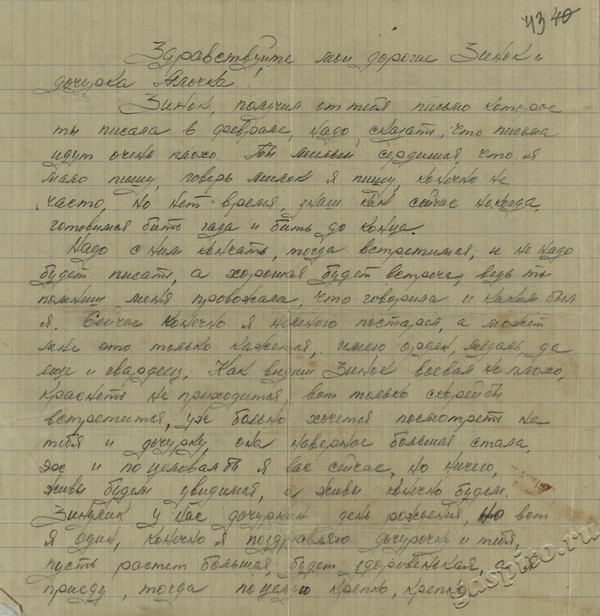 43 40
Здравствуйте мои дорогие Зинок и
дочурка Алочка!
Зинок, получил от тебя письмо которое
ты писала в феврале, надо сказать, что письма
идут очень плохо. Ты милый сердишся, что я
мало пишу, поверь милок я пишу, конечно не
часто, но нет время, знаш как сейчас некогда,
готовимся бить гада и бить до конца.
Надо с ним кончать, тогда встретимся, и не надо
будет писать, а хорошая будет встреча, ведь ты
помниш меня провожала, что говорила и каким был
я. Сейчас конечно я немного постарел, а может
мне это только кажется, имею орден, медаль да
еще и гвардеец. Как видиш Зинок воевал не плохо,
краснеть не приходится вот только скорей бы
встретится, уж больно хочется посмотреть на
тебя и дочурку, она наверное большая стала,
эх и поцеловал бы я вас сейчас, но ничего,
живы будем увидимся, а живы конечно будем.
Зинулик у нас дочуркин день рожьения, но вот
я один, конечно я поздравляю дочурочку и тебя,
пусть растет большая, будет здоровенькая, а я
приеду, тогда поцелую крепко, крепко
gaspiro.ru